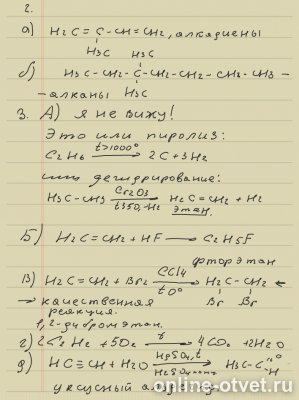 2.
а) H₂C=C-CH=CH₂, алкадиены
H₃C H₃C
б) H₃C-CH₂-C-CH₂-CH₂-CH₂-CH₃ -
-алканы H₃C
3. А) я не вижу!
Это или пиролиз:
C₂H₆ t>1000° 2C+3H₂
или дегидрирование:
H₃C-CH₃ Cr₂O₃ H₂C=CH₂ + H₂
t350,-H₂ этан.
Б) H₂C=CH₂ + HF → C₂H₅F
фторэтан
В) H₂C=CH₂ + Br₂ CCl₄ H₂C-CH₂ ←
t0° Br Br
→ качественная
реакция.
1,2-дибромэтан.
г) 2C₂H₂ + 5O₂ t→ 4CO₂ + 2H₂O
д) HC≡CH + H₂O HgSO₄,t H₃C-C O
H₂SO₄ H
уксусный
online-otvet.ru